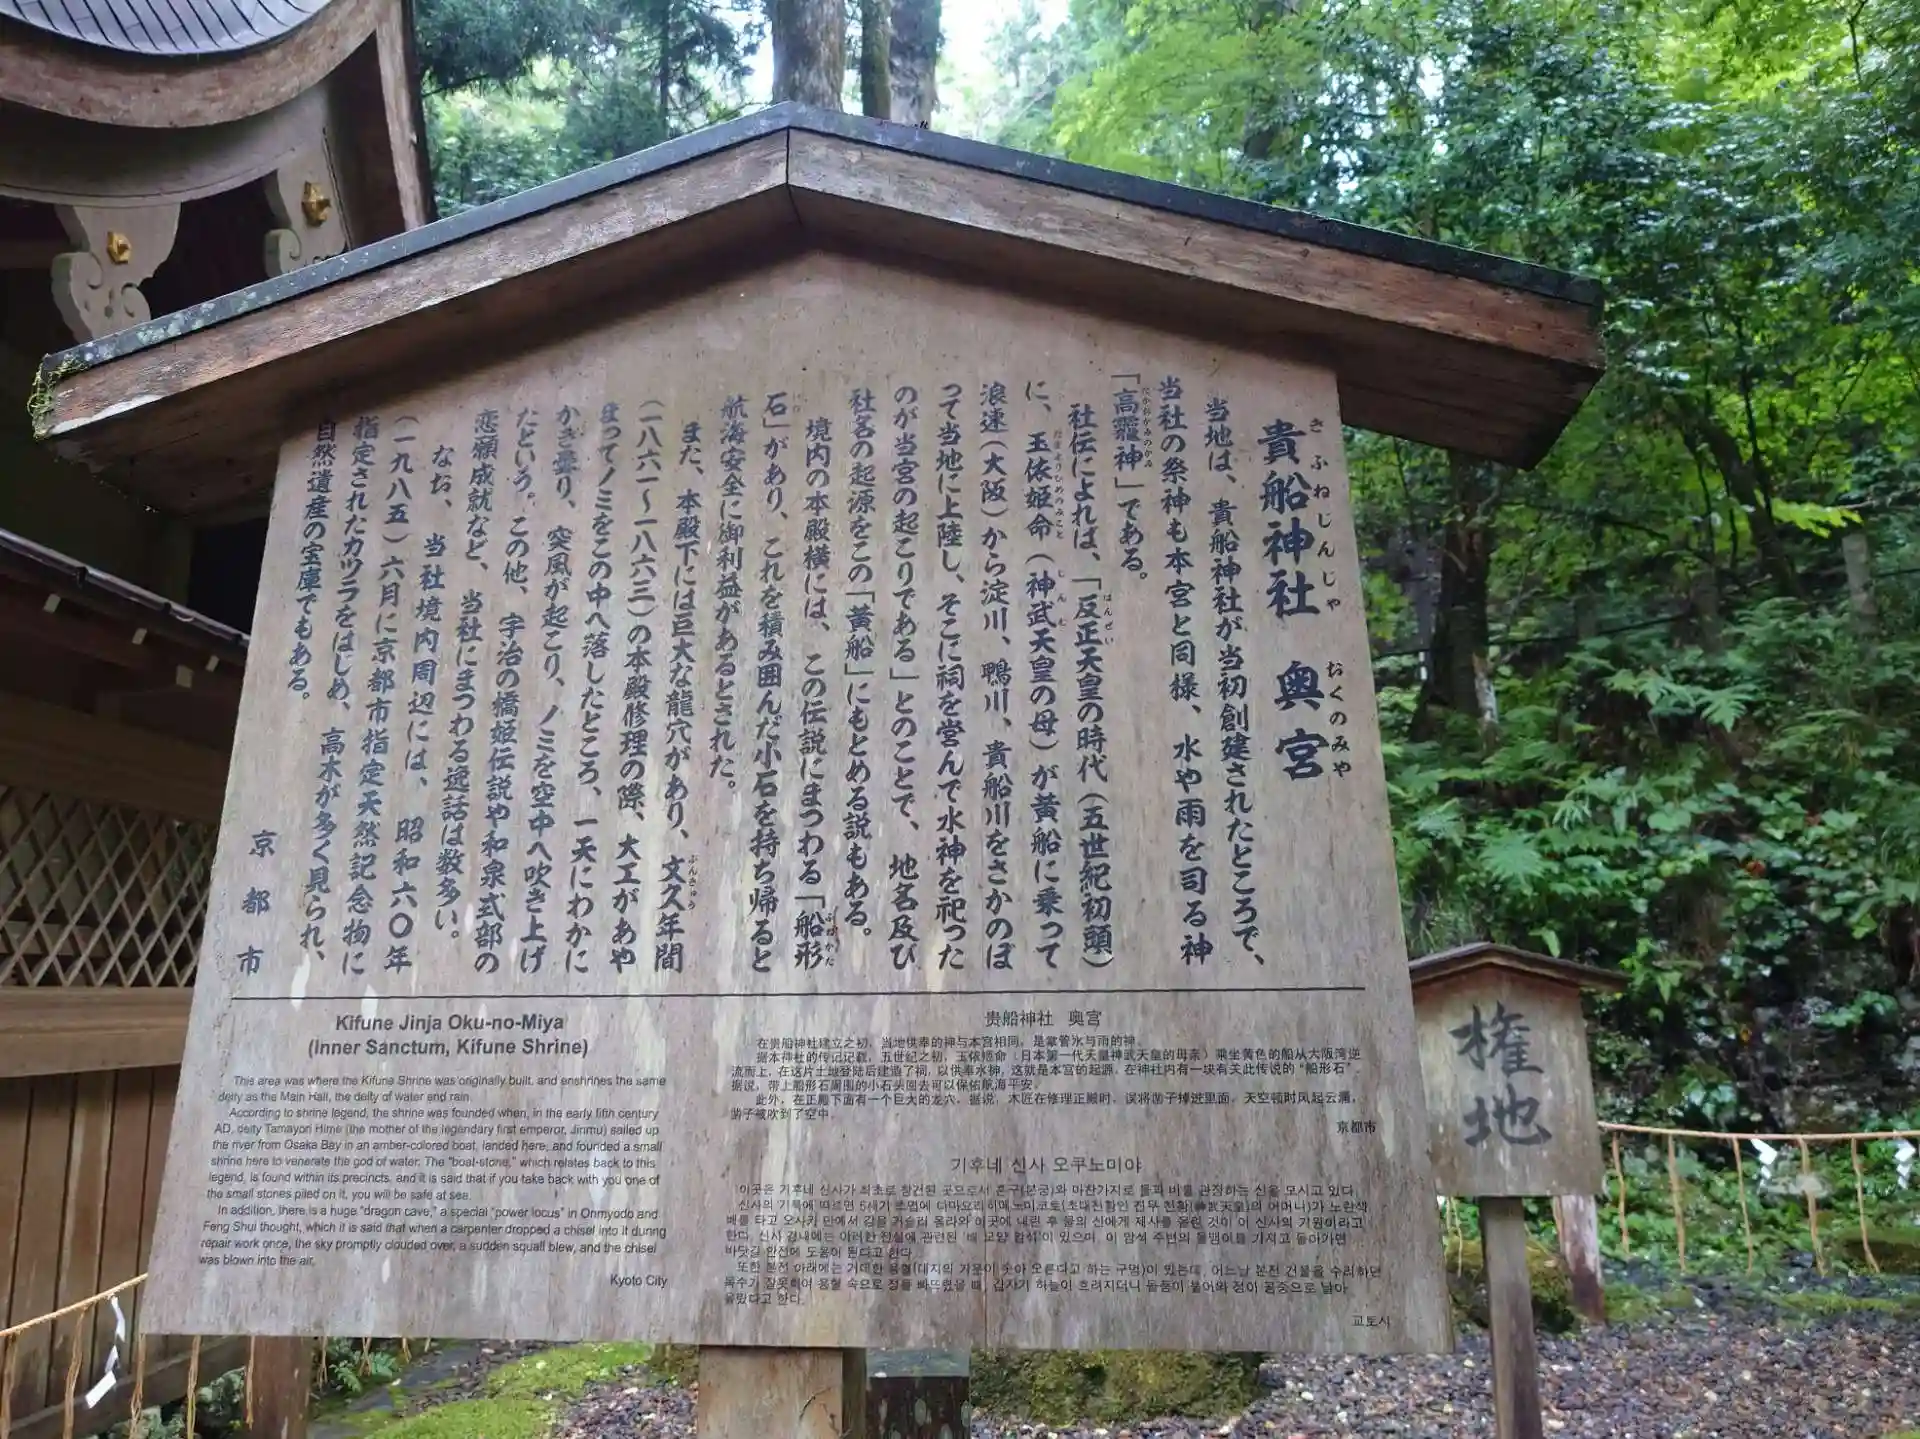 貴船神社 奥宮
さふねじんじゃ おくのみや
当地は、貴船神社が当初創建されたところで、
当社の祭神も本宮と同様、水や雨を司る神
「高龗神」である。
たかおかみのかみ
社伝によれば、「反正天皇の時代（五世紀初頭）
はんぜい
に、玉依姫命（神武天皇の母）が黄船に乗って
たまよりひめのみこと じんむ
浪速（大阪）から淀川、鴨川、貴船川をさかのぼ
って当地に上陸し、そこに祠を営んで水神を祀った
のが当宮の起こりである」とのことで、地名及び
社名の起源をこの「黄船」にもとめる説もある。
境内の本殿横には、この伝説にまつわる「船形
ふながた
石」があり、これを積み囲んだ小石を持ち帰ると
航海安全に御利益があるとされた。
また、本殿下には巨大な龍穴があり、文久年間
ぶんきゅう
（一八六一〜一八六三）の本殿修理の際、大工があや
まってノミをこの中へ落したところ、一天にわかに
かき曇り、突風が起こり、ノミを空中へ吹き上げ
たという。この他、宇治の橋姫伝説や和泉式部の
恋願成就など、当社にまつわる逸話は数多い。
なお、当社境内周辺には、昭和六〇年
（一九八五）六月に京都市指定天然記念物に
指定されたカツラをはじめ、高木が多く見られ、
自然遺産の宝庫でもある。
京都市
Kifune Jinja Oku-no-Miya
(Inner Sanctum, Kifune Shrine)
This area was where the Kifune Shrine was originally built, and enshrines the same
deity as the Main Hall, the deity of water and rain.
According to shrine legend, the shrine was founded when, in the early fifth century
AD, deity Tamayori Hime (the mother of the legendary first emperor, Jinmu) sailed up
the river from Osaka Bay in an amber-colored boat, landed here, and founded a small
shrine here to venerate the god of water. The "boat-stone," which relates back to this
legend, is found within its precincts, and it is said that if you take back with you one of
the small stones piled on it, you will be safe at sea.
In addition, there is a huge "dragon cave," a special "power locus" in Onmyodo and
Feng Shui thought, which it is said that when a carpenter dropped a chisel into it during
repair work once, the sky promptly clouded over, a sudden squall blew, and the chisel
was blown into the air.
Kyoto City
贵船神社 奥宫
在贵船神社建立之初，当地供奉的神与本宫相同，是掌管水与雨的神。
据本神社的传记记载，五世纪之初，玉依姬命（日本第一代天皇神武天皇的母亲）乘坐黄色的船从大阪湾逆
流而上，在这片土地登陆后建造了祠，以供奉水神，这就是本宫的起源。在神社内有一块有关此传说的“船形石”。
据说，带上船形石周围的小石头回去可以保佑航海平安。
此外，在正殿下面有一个巨大的龙穴，据说，木匠在修理正殿时，误将凿子掉进里面，天空顿时风起云涌，
凿子被吹到了空中。
京都市
기후네 신사 오쿠노미야
이곳은 기후네 신사가 최초로 창건된 곳으로서 혼구(본궁)와 마찬가지로 물과 비를 관장하는 신을 모시고 있다.
신사의 기록에 따르면 5세기 초엽에 다마요리히메노미코토(초대천황인 진무 천황(神武天皇)의 어머니)가 노란색
배를 타고 오사카 만에서 강을 거슬러 올라와 이곳에 내린 후 물의 신에게 제사를 올린 것이 이 신사의 기원이라고
한다. 신사 경내에는 이러한 전설에 관련된 '배 모양 암석'이 있으며, 이 암석 주변의 돌멩이를 가지고 돌아가면
바닷길 안전에 도움이 된다고 한다.
또한 본전 아래에는 거대한 용혈(대지의 기운이 솟아 오른다고 하는 구멍)이 있는데, 어느날 본전 건물을 수리하던
목수가 잘못하여 용혈 속으로 정을 빠뜨렸을 때, 갑자기 하늘이 흐려지더니 돌풍이 불어와 정이 공중으로 날아
올랐다고 한다.
교토시
権地